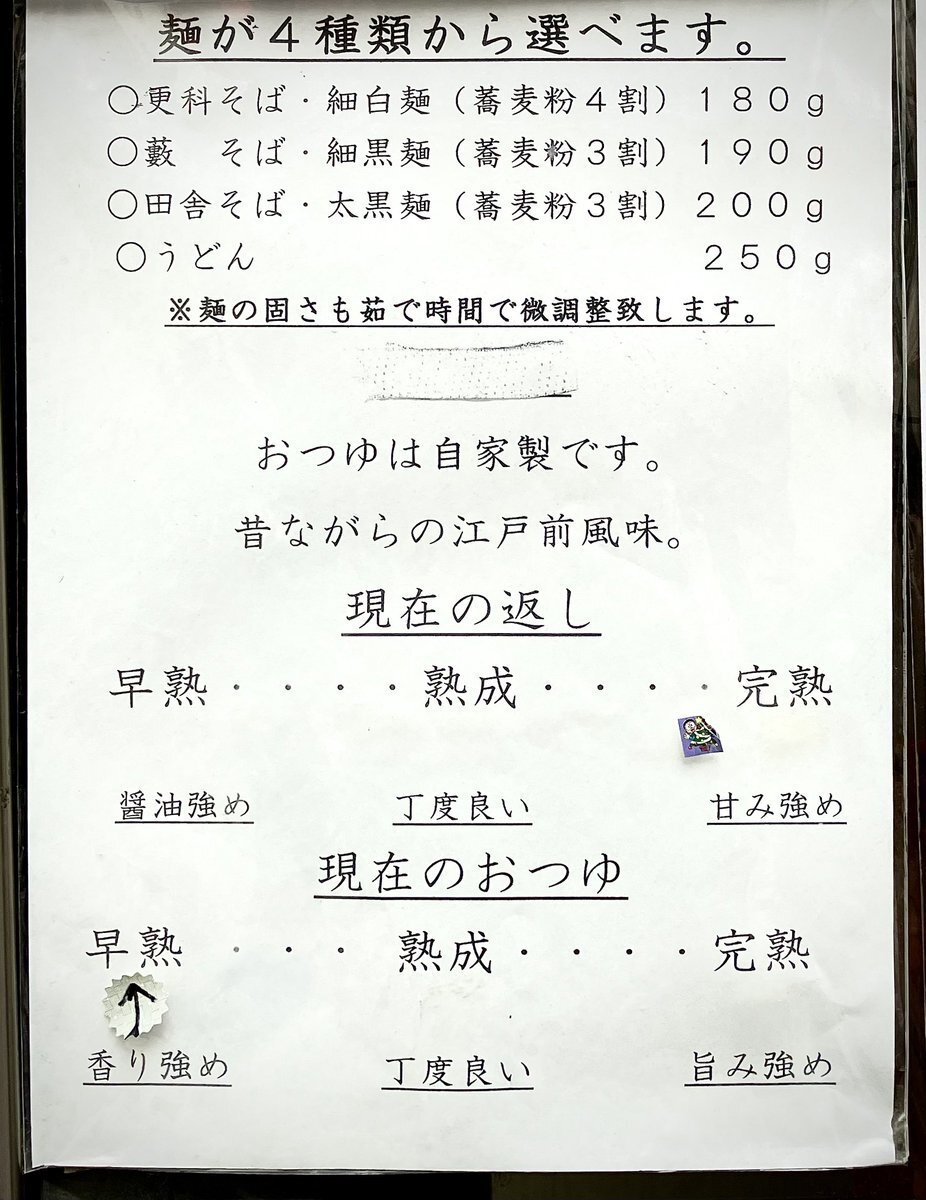 麺が４種類から選べます。
〇更科そば・細白麺（蕎麦粉４割）１８０ｇ
〇藪　そば・細黒麺（蕎麦粉３割）１９０ｇ
〇田舎そば・太黒麺（蕎麦粉３割）２００ｇ
〇うどん　２５０ｇ
※麺の固さも茹で時間で微調整致します。
おつゆは自家製です。
昔ながらの江戸前風味。
現在の返し
早熟・・・・熟成・・・・完熟
醤油強め　丁度良い　甘み強め
現在のおつゆ
早熟・・・熟成・・・・完熟
↑
香り強め　丁度良い　旨み強め